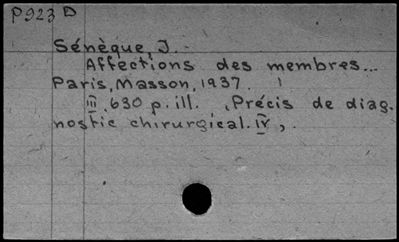 P923 D
Sénèque, J.
Affections des membres...
Paris, Masson, 1937.
III, 630 p. ill. (Précis de diag-
nostic chirurgical. IV).